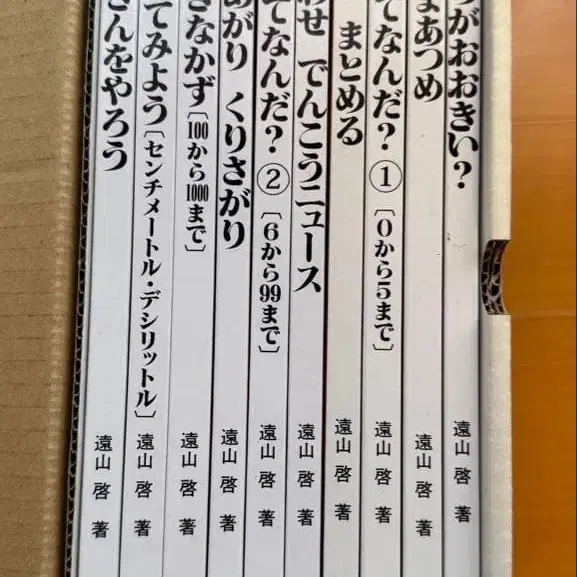 がおおきい?
遠山 啓 著
まあつめ
遠山 啓 著
てなんだ? ① 〔0から5まで〕
遠山 啓 著
まとめる
遠山 啓 著
わせ でんこうニュース
遠山 啓 著
てなんだ? ② 〔6から99まで〕
遠山 啓 著
あがり くりさがり
遠山 啓 著
きなかず〔100から1000まで〕
遠山 啓 著
てみよう〔センチメートル・デシリットル〕
遠山 啓 著
さんをやろう
遠山 啓 著